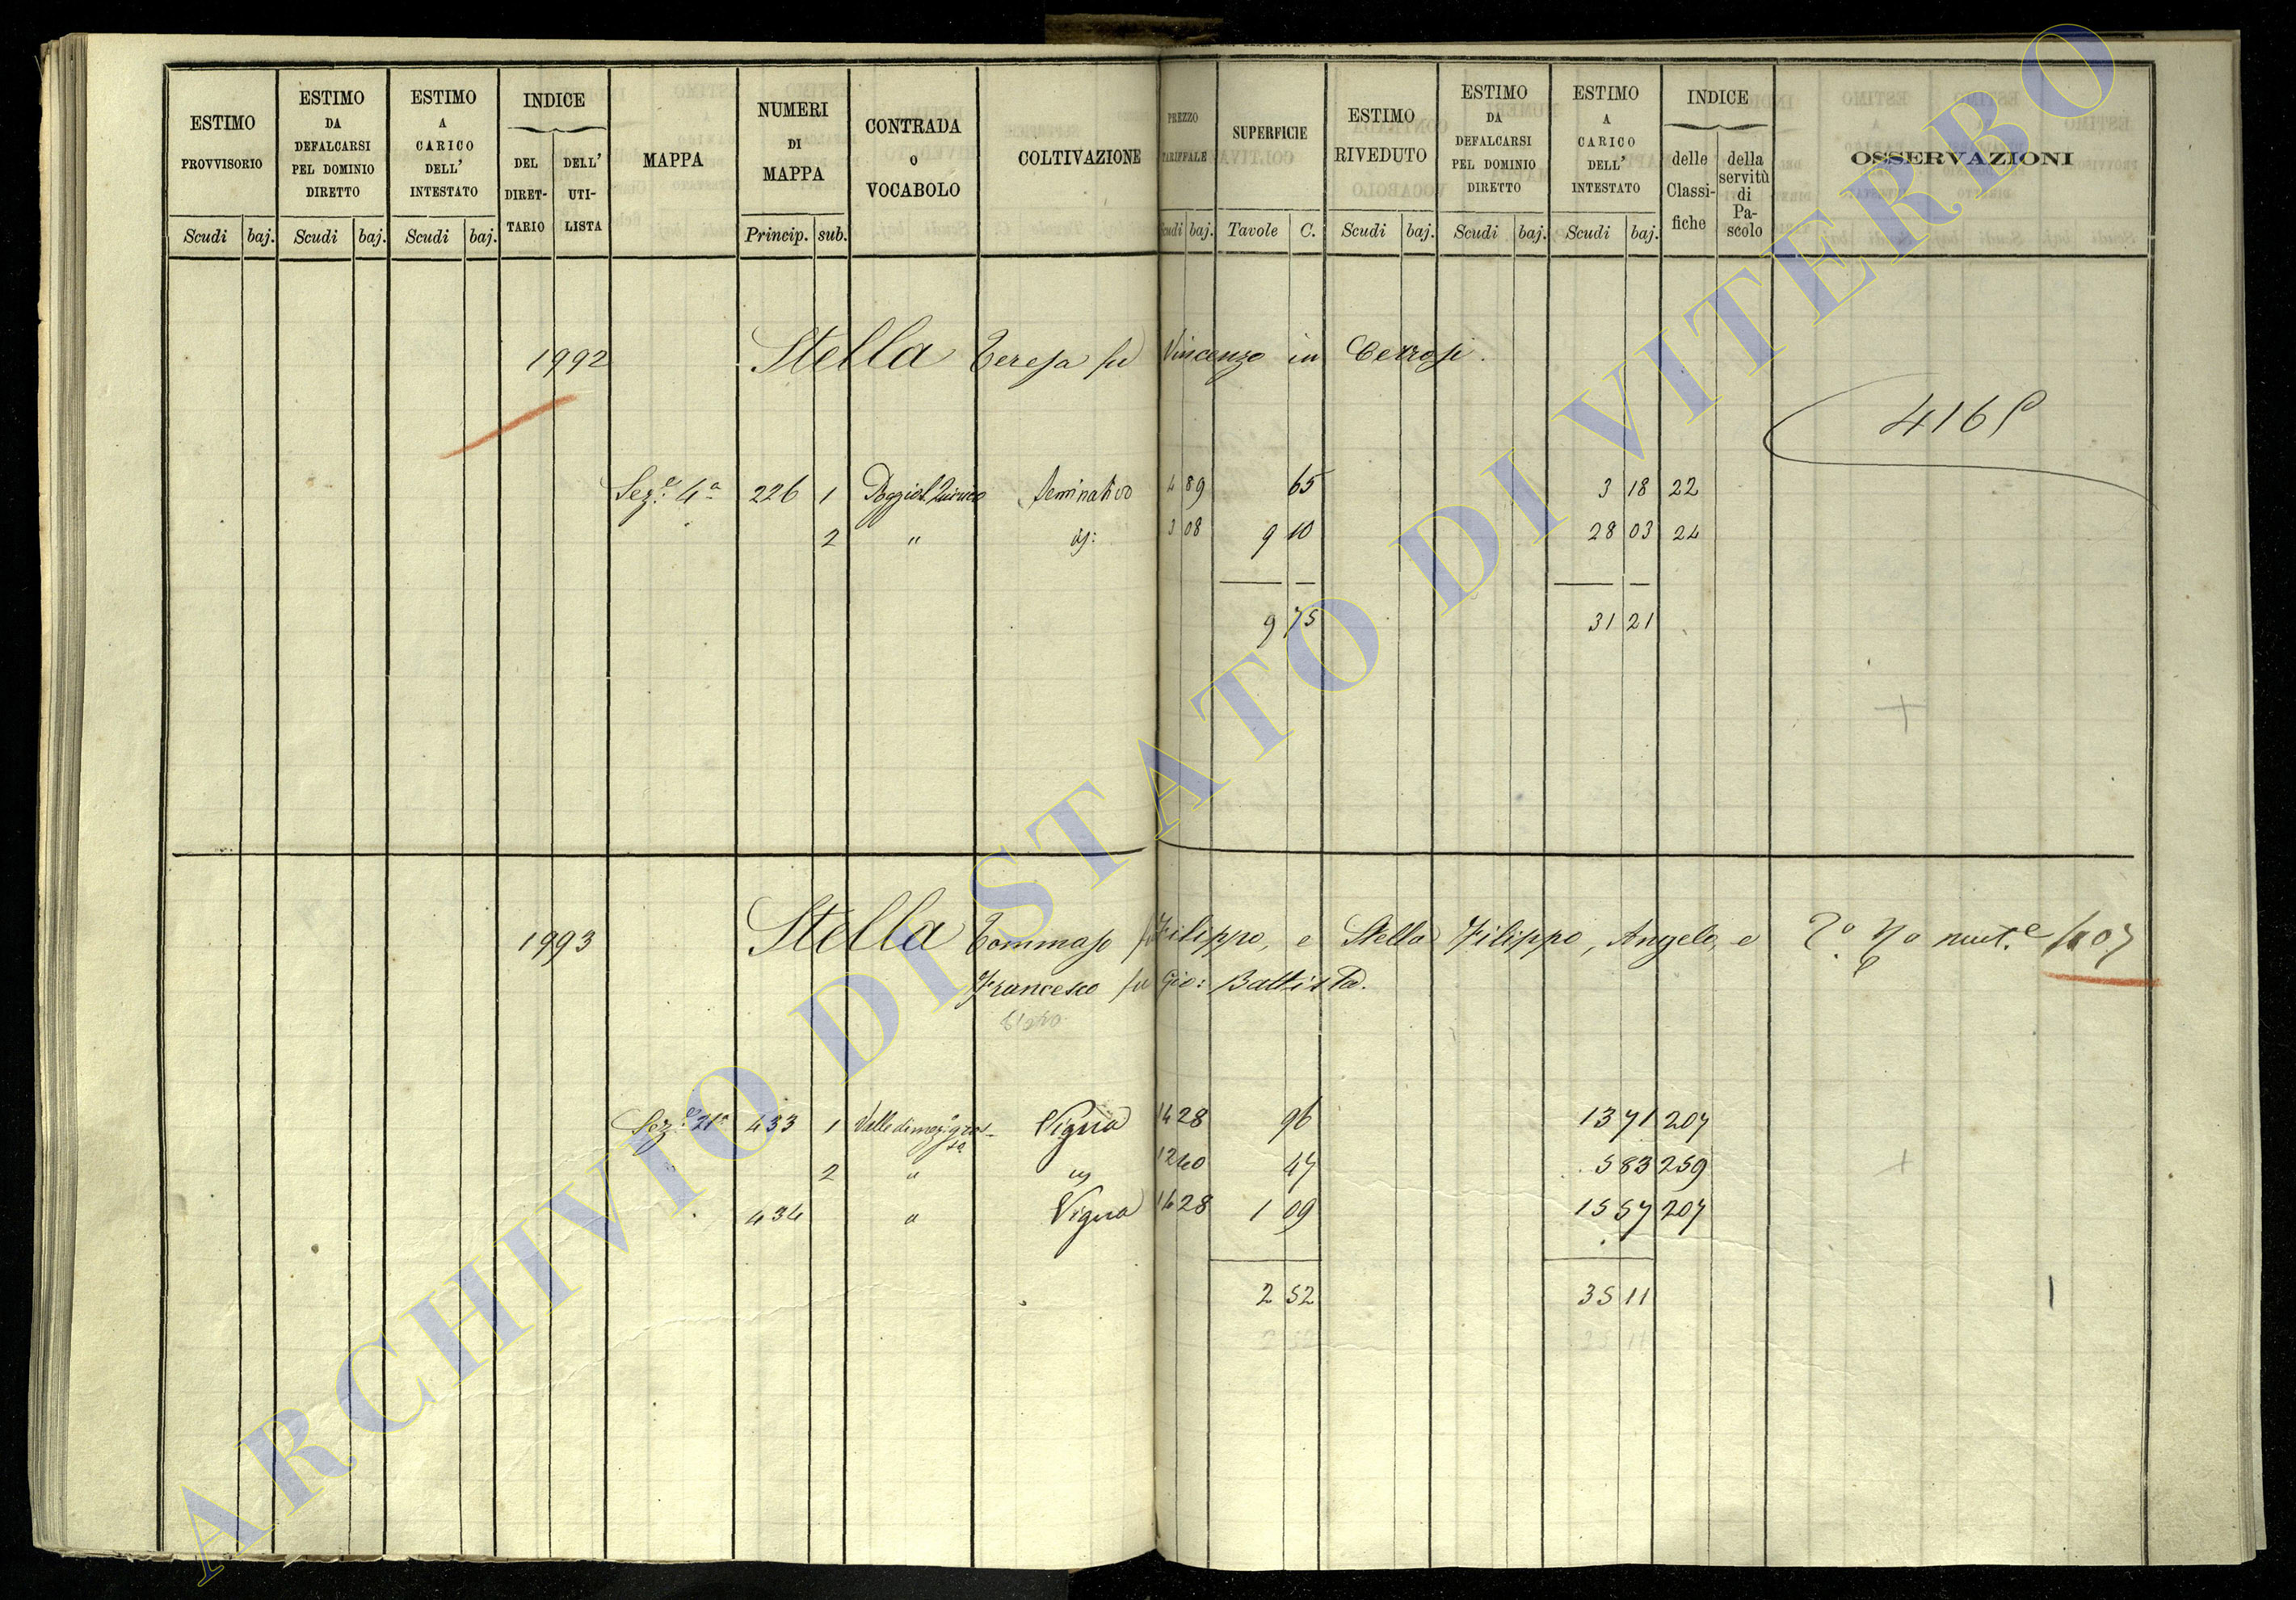 ESTIMO PROVVISORIO
ESTIMO DA DEFALCARSI PEL DOMINIO DIRETTO
ESTIMO A CARICO DELL' INTESTATO
INDICE
DEL DIRET- TARIO
DELL' UTI- LISTA
MAPPA
NUMERI DI MAPPA
CONTRADA O VOCABOLO
COLTIVAZIONE
PREZZO TARIFFALE
SUPERFICIE
ESTIMO RIVEDUTO
ESTIMO DA DEFALCARSI PEL DOMINIO DIRETTO
ESTIMO A CARICO DELL' INTESTATO
INDICE
delle Classi- fiche
della servitù di Pa- scolo
OSSERVAZIONI
Scudi baj. Scudi baj. Scudi baj. Princip. sub. Scudi baj. Tavole C. Scudi baj. Scudi baj. Scudi baj.
1992 Stella Teresa fu Vincenzo in
416
Sez.e 4a 226 1 Seminativo 4 89 65 3 18 22
2 " 3 08 9 10 28 03 24
9 75 31 21
1993 Stella Tommaso fu Filippo, e Stella Filippo, Angelo, e
Francesco fu Gio: Battista.
Sez.e 21a 433 1 Vigna 14 28 96 13 71 207
2 " 12 40 47 5 83 259
434 " Vigna 14 28 1 09 15 57 207
2 52 35 11
2 52 35 11
ARCHIVIO DI STATO DI VITERBO